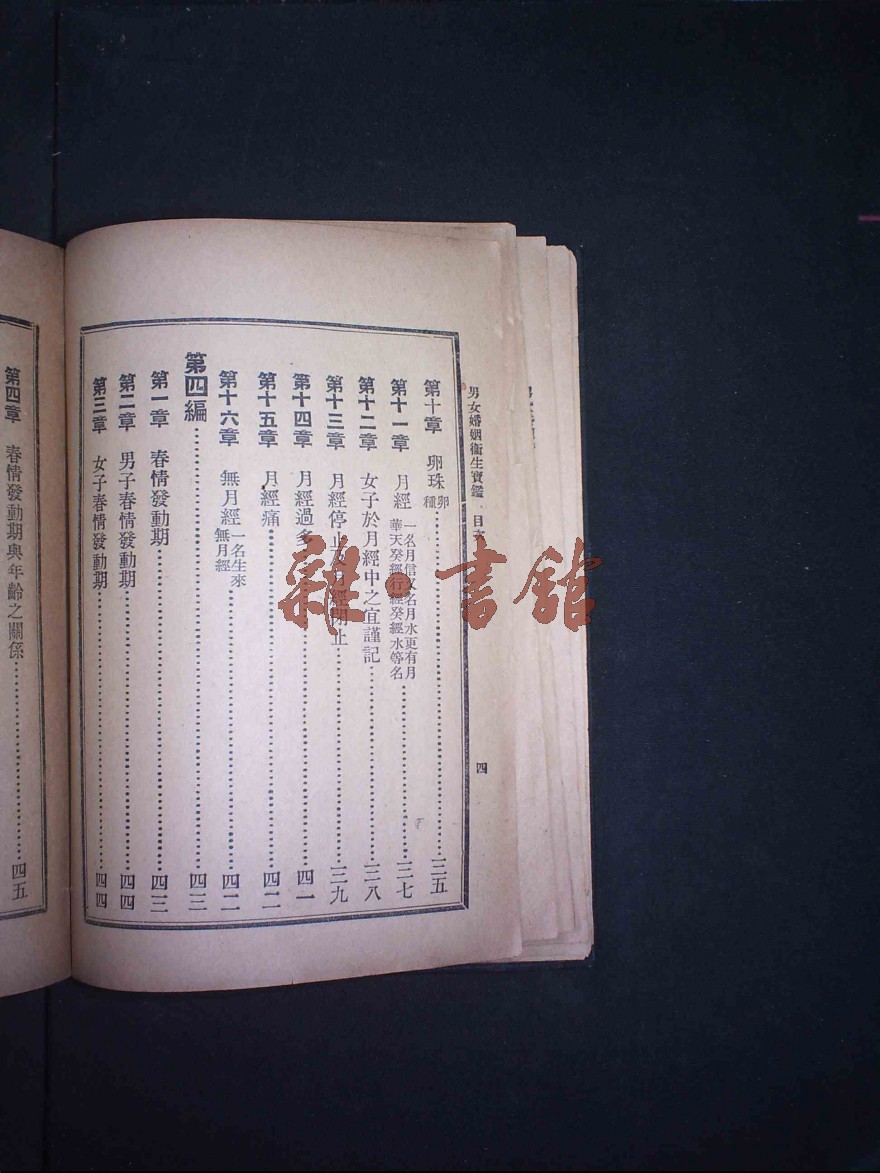 男女婚姻衞生寶鑑 目次
四
第十章 卵珠 卵種 三五
第十一章 月經 一名月信又名月水更有月華天癸經行經癸經水等名 三七
第十二章 女子於月經中之宜謹記 三八
第十三章 月經停止及月經閉止 三九
第十四章 月經過多 四一
第十五章 月經痛 四二
第十六章 無月經 一名生來無月經 四二
第四編 四三
第一章 春情發動期 四三
第二章 男子春情發動期 四四
第三章 女子春情發動期 四四
第四章 春情發動期與年齡之關係 四五
雜·書館